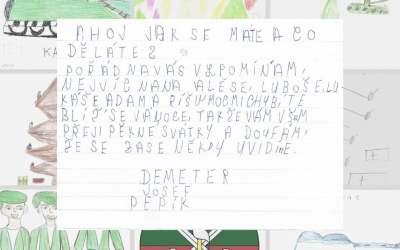 AHOJ JAK SE MATE A CO
DĚLÁTE ?
POŘÁD NA VÁS VZPOMÍNÁM,
NEJVÍC NA NA ALEŠE, LUBOŠE, LU
KÁŠE, ADAMA RÍŠU MOC MI CHYBÍTE
BLÍŽ SE VÁNOCE, TAKŽE VÁM VŠEM
PŘEJI PĚKNÉ SVÁTKY A DOUFÁM
ŽE SE ZASE NĚKDY UVIDÍME.
DEMETER
JOSEF
PEPÍK
KA